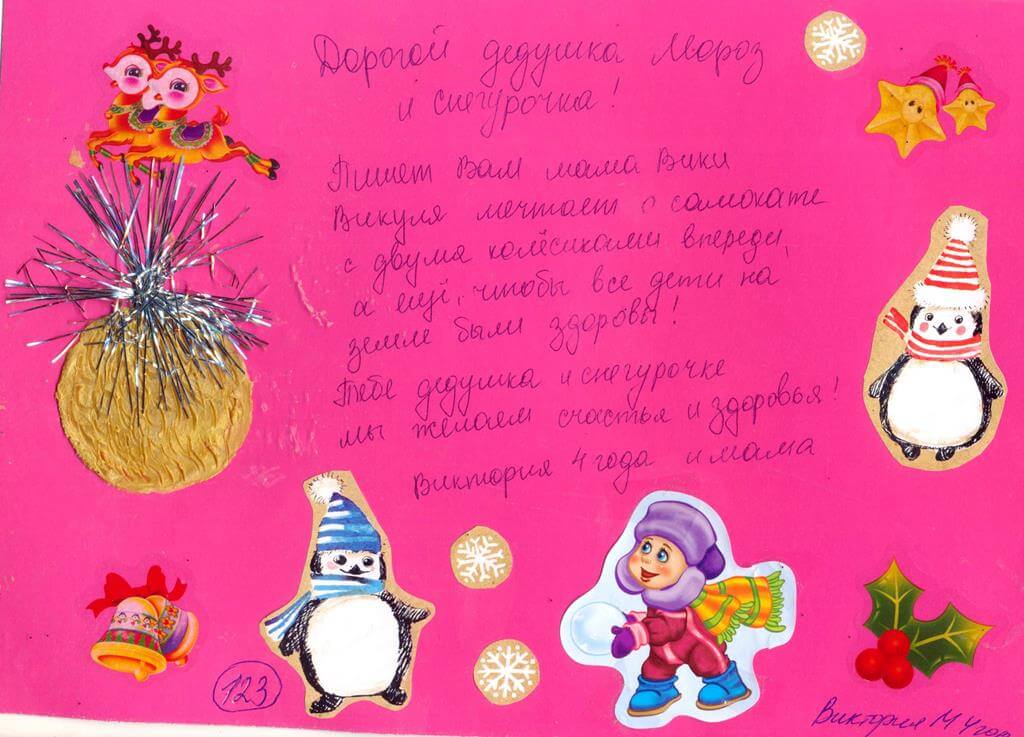 Дорогой дедушка Мороз
и снегурочка!
Пишет Вам мама Вики
Викуля мечтает о самокате
с двумя колёсиками впереди,
а ещё, чтобы все дети на
земле были здоровы!
Тебе дедушка и снегурочке
мы желаем счастья и здоровья!
Виктория 4 года и мама
123
Виктория М 4 год